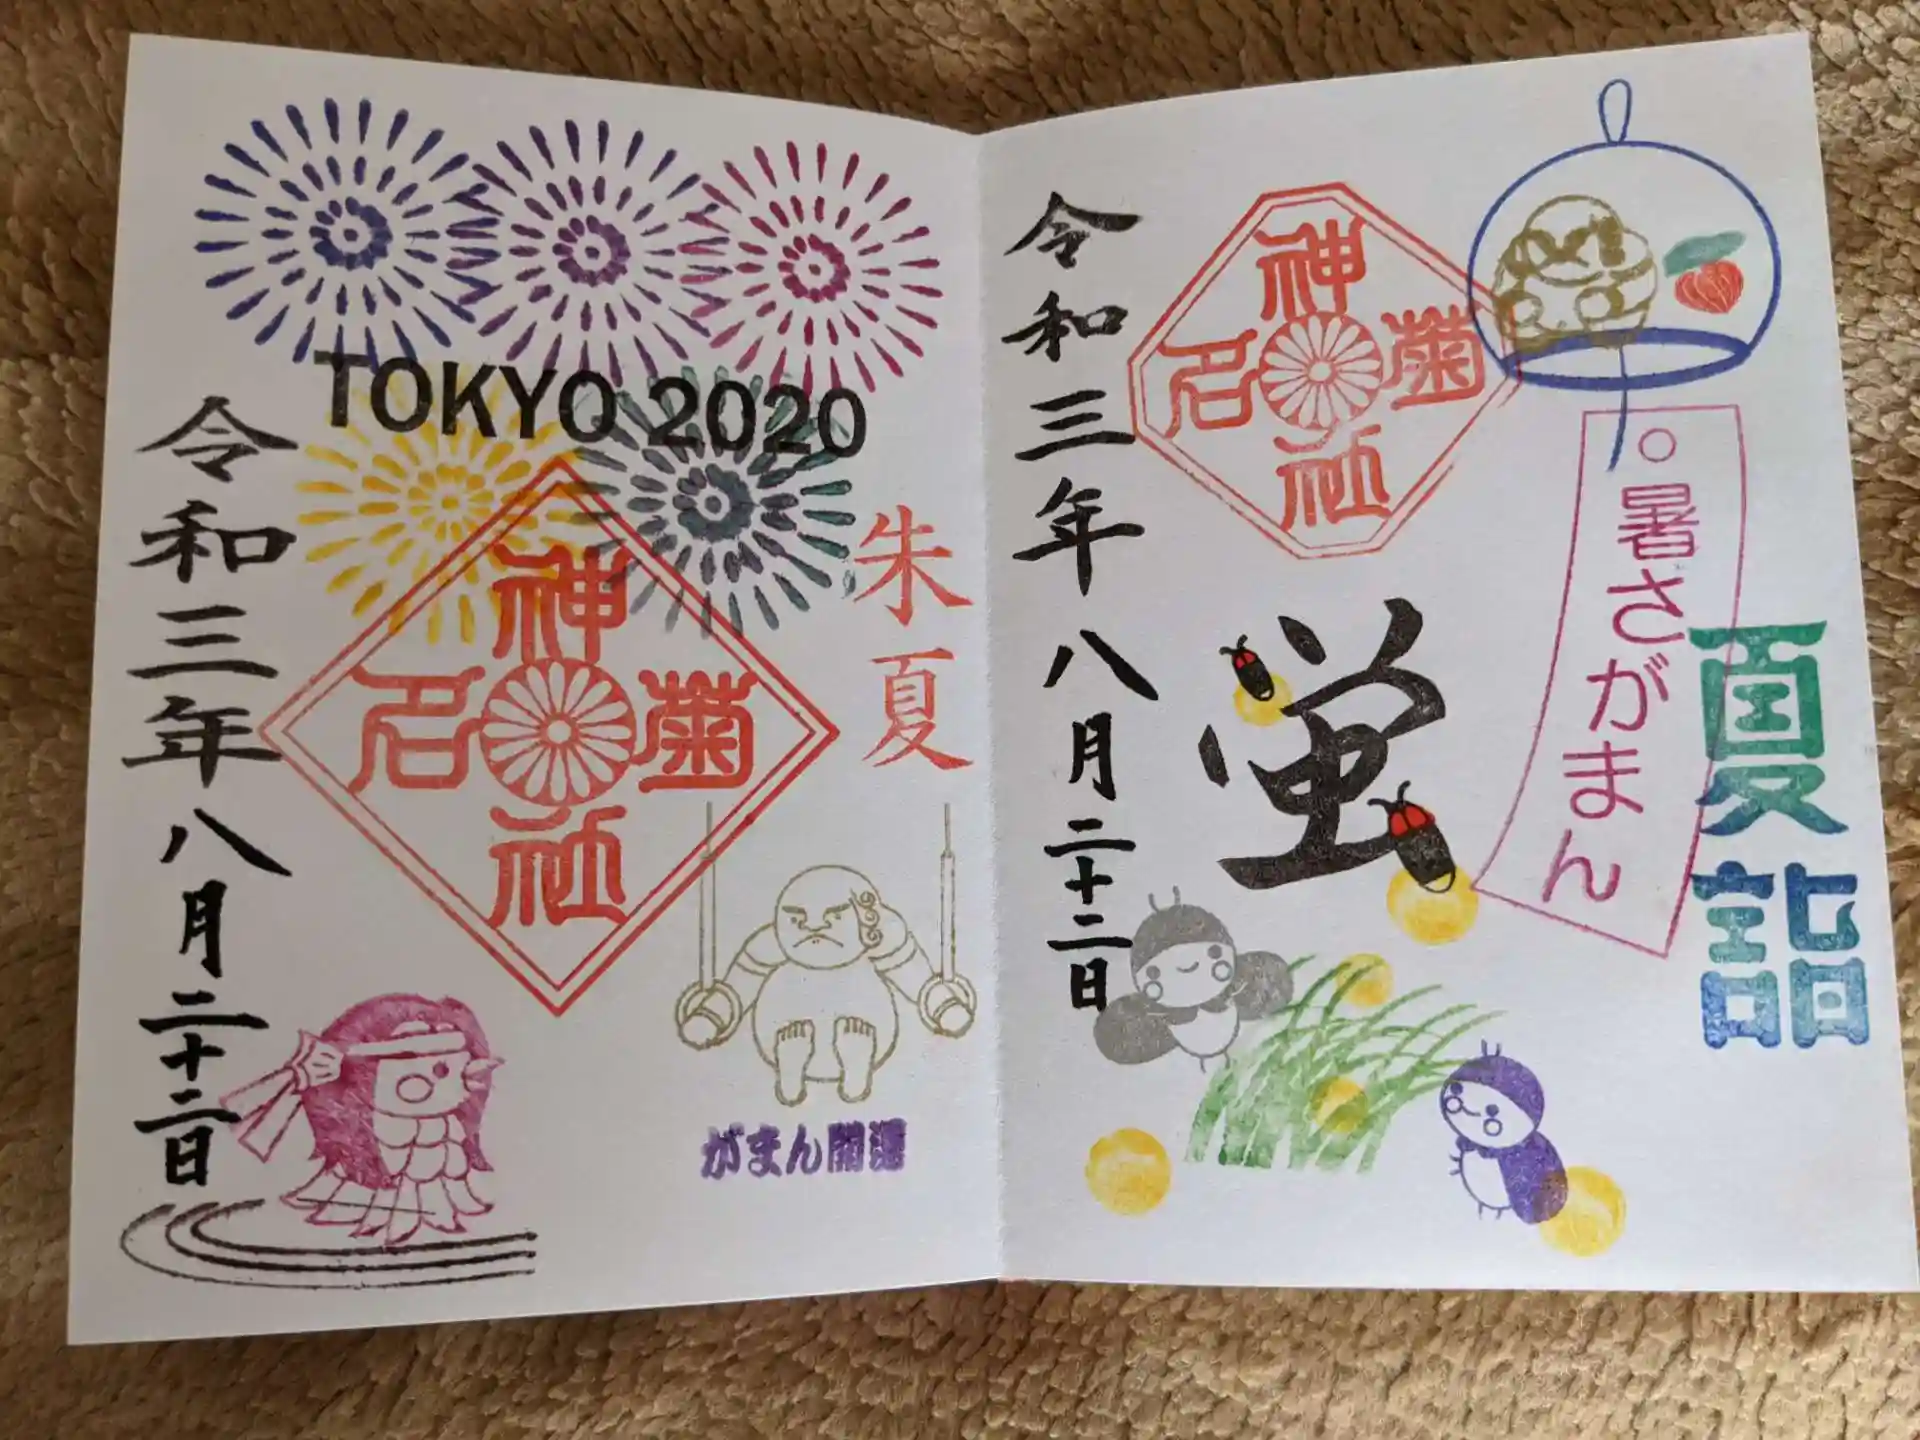 TOKYO 2020
朱夏
菊名神社
令和三年八月二十二日
がまん開運
夏詣
暑さがまん
菊名神社
蛍
令和三年八月二十二日